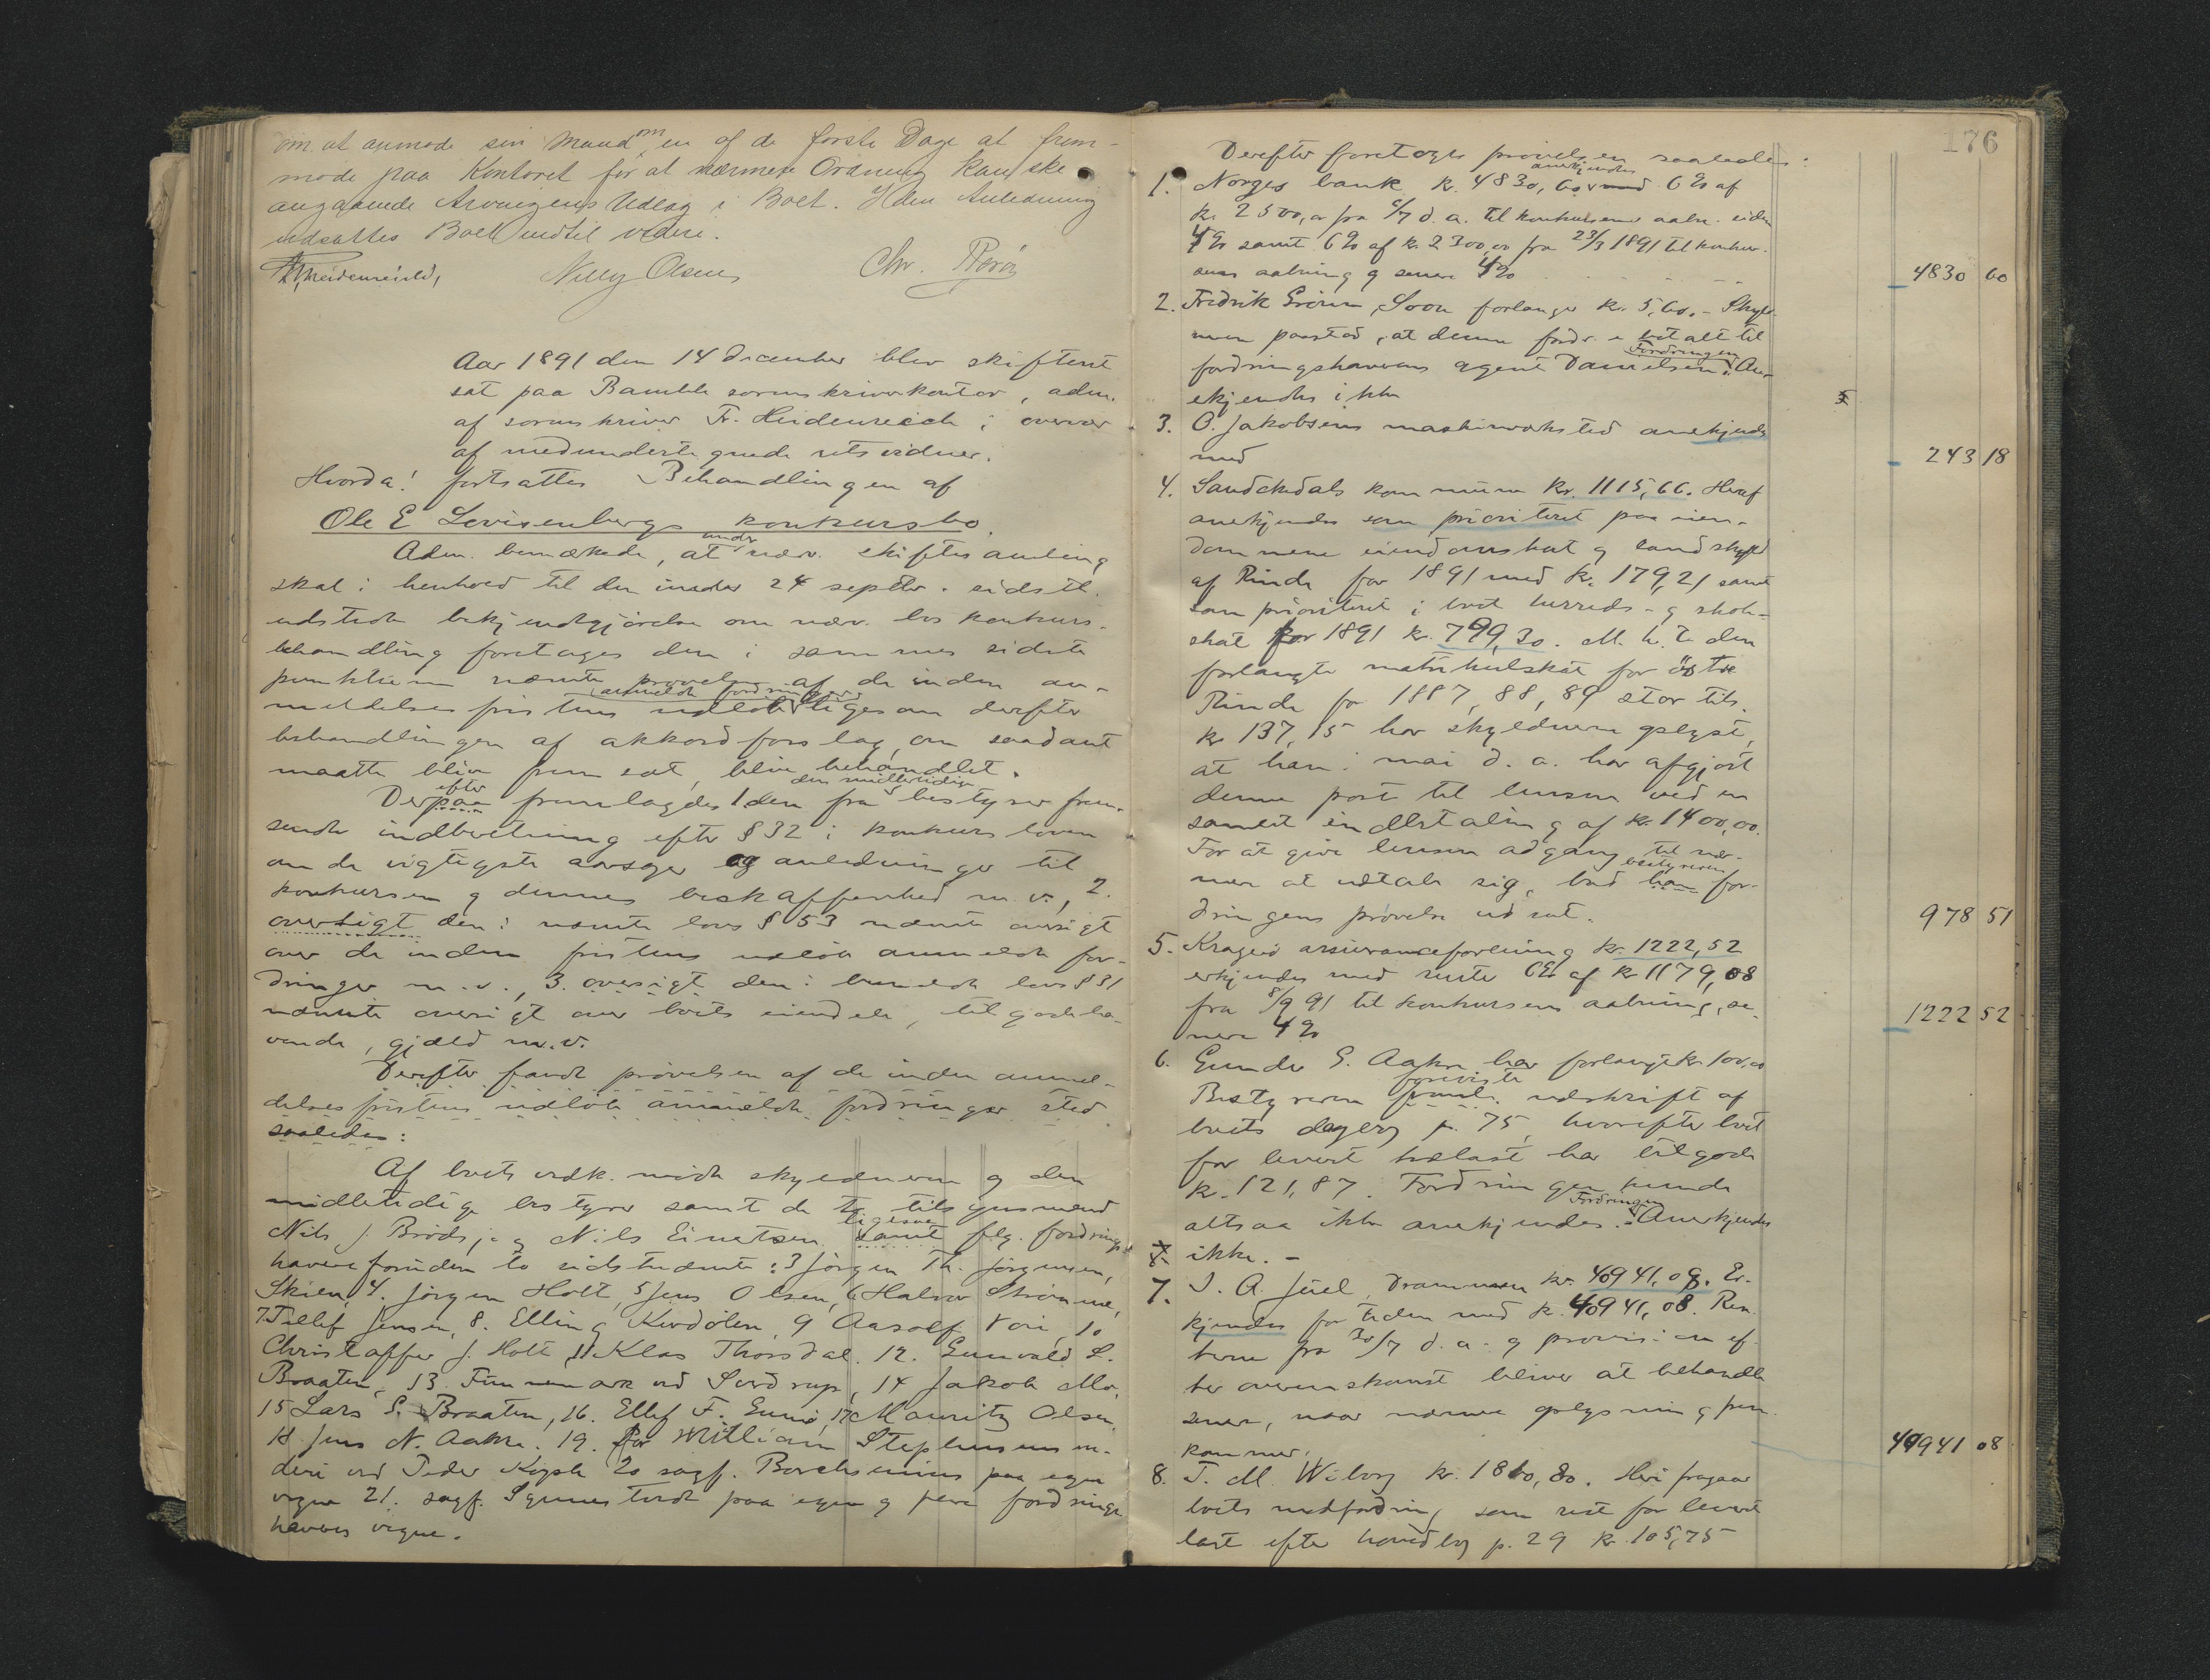 om at anmode sin Mand om en af de første Dage at frem-
møde paa Kontoret for at nærmere Ordning kan ske
angaaende Arvingens Udlæg i Boet. I den Anledning
udsattes Boet indtil videre.
Fr. Heidenreich, Nilly Olsen Chr.
Aar 1891 den 14 december blev skifteret
sat paa Bamble sorenskriverkontor, adm.
af sorenskriver Fr. Heidenreich i overvær
af medundertegnede retsvidner.
Hvorda! fortsattes Behandlingen af
Ole E Lovisenbergs konkursbo.
Adm. bemærkede, at under nærv. skiftesamling
skal i henhold til den under 24 septbr. sidstl.
udstedte bekjendtgjørelse om nærv. bos konkurs-
behandling foretages den i sammes sidste
punktum nævnte prøvelse af de inden an-
meldelsesfristens udløb anmeldte fordringer ligesom derefter
behandlingen af akkordforslag, om saadant
maatte blive fremsat, blive behandlet.
Derpaa efter fremlagdes 1 den fra den midlertidige bestyrer frem-
sendte indberetning efter § 32 i konkursloven
om de vigtigste aarsager og anledninger til
konkursen og dennes beskaffenhed m. v., 2.
oversigt den i nævnte lovs § 53 nævnte oversigt
over de inden fristens udløb anmeldte for-
dringer m. v., 3. oversigt den i bemeldte lovs § 31
nævnte oversigt over boets eiendele, tilgodeha-
vende, gjæld m. v.
Derefter fandt prøvelsen af de inden anmel-
delsesfristens udløb anmeldte fordringer sted
saaledes:
Af boets vedk. mødte skyldneren og den
midlertidige bestyrer samt de to tilsynsmænd
Nils J. Brødsjø og Nils Einertsen samt ligesaa flg. fordrings-
havere foruden to sidstnævnte: 3 Jørgen Th. Jørgensen,
Skien, 4. Jørgen Holt, 5 Jens Olsen, 6 Halvor Strømme,
7 Tellef Jensen, 8. Elling Kurdølen, 9 Aasolf 10
Christoffer J. Holt 11 Klas Thorsdal. 12. Gunvald L.
Braaten, 13. Finnemark ved Surdrup, 14 Jakob Mo,
15 Lars S. Braaten, 16. Ellef F. 17 Mauritz Olsen,
18 Jens N. Aakre. 19. For William Stephensens en-
deri ved Peder Kopsle 20 sagf. Borchsenius paa egne
vegne 21. sagf. paa egen og flere fordrings-
haveres vegne.
176
Derefter foretoges prøvelsen saaledes:
1. Norges bank kr. 4830,60 anerkjendes med 6 % af
kr. 2500,00 fra 6/7 d. a. til konkursens aabn. siden
4 % samt 6 % af kr. 2300,00 fra 23/3 1891 til konkur-
sens aabning og senere 4 % 4830 60
2. Fredrik Soon forlanger kr. 5,60. - Skyld-
neren paastod, at denne fordr. er betalt til
fordringshaverens agent Danielsen. Fordringen Aner-
kjendes ikke
3. O. Jakobsens maskinværksted anerkjendes
med 243 18
4. Sandøkedals kommune kr. 1115,66. Heraf
anerkjendes som prioriteret paa eien-
dommene eiendomsskat og landskyld
af Rinde for 1891 med kr. 179,21 samt
som prioriteret i boet herreds- og skole-
skat for 1891 kr. 799,30. M. h. t. den
forlangte matrikulskat for østre
Rinde for 1887, 88, 89 stor tils.
kr 137,15 har skyldneren oplyst,
at han i mai d. a. har afgjort
denne post til lensm. ved en
samlet indbetaling af kr. 1400,00.
For at give lensm. adgang til nær-
mere at udtale sig, bad han bestyreren for-
dringens prøvelse udsat. 978 51
5. Kragerø assuranceforening kr. 1222,52
erkjendes med rente 6 % af kr 1179,08
fra 8/9 91 til konkursens aabning, se-
nere 4 % 1222 52
6. Gunder G. Aakre har forlangt kr 100,00
Bestyreren foreviste udskrift af
boets dagbog p. 75, hvorefter boet
for levert trælast har tilgode
kr. 121,87. Fordringen kunde
altsaa ikke anerkjendes. Fordringen Anerkjendes
ikke. -
7. J. A. Juel, Drammen kr. 40941,08. Er-
kjendes for tiden med kr. 40941,08. Ren-
terne fra 30/7 d. a. og provision ef-
ter overenskomst bliver at behandle
senere, naar nærmere oplysning frem-
kommer. 40941 08
8. T. M. Wiborg kr. 1860,80. Heri fragaar
boets modfordring som rest for levert
last efter hovedbog p. 29 kr. 105,75